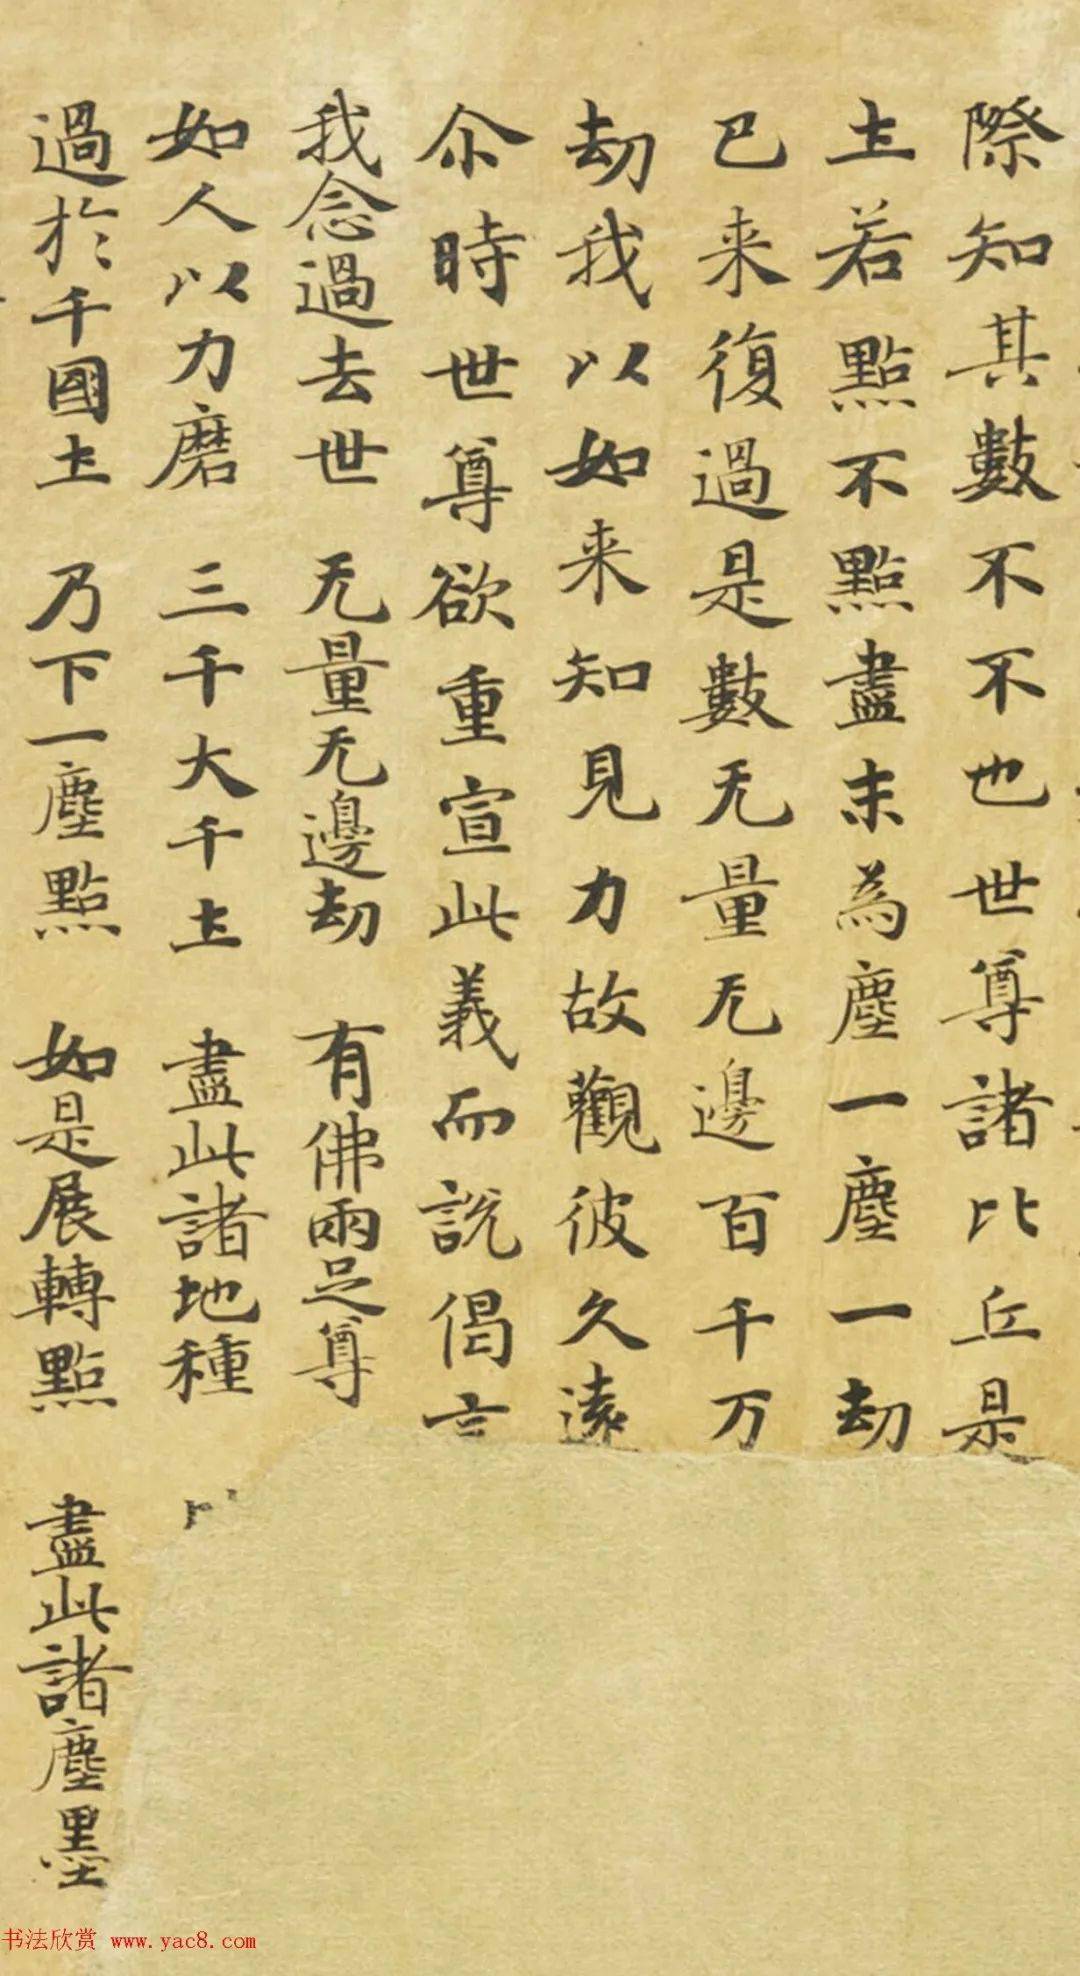 際知其數不不也世尊諸比丘是
土若點不點盡末為塵一塵一劫
已来復過是數无量无邊百千万
劫我以如来知見力故觀彼久遠
尒時世尊欲重宣此義而說偈言
我念過去世 无量无邊劫 有佛兩足尊
如人以力磨 三千大千土 盡此諸地種
過於千國土 乃下一塵點 如是展轉點 盡此諸塵墨
书法欣赏 www.yac8.com